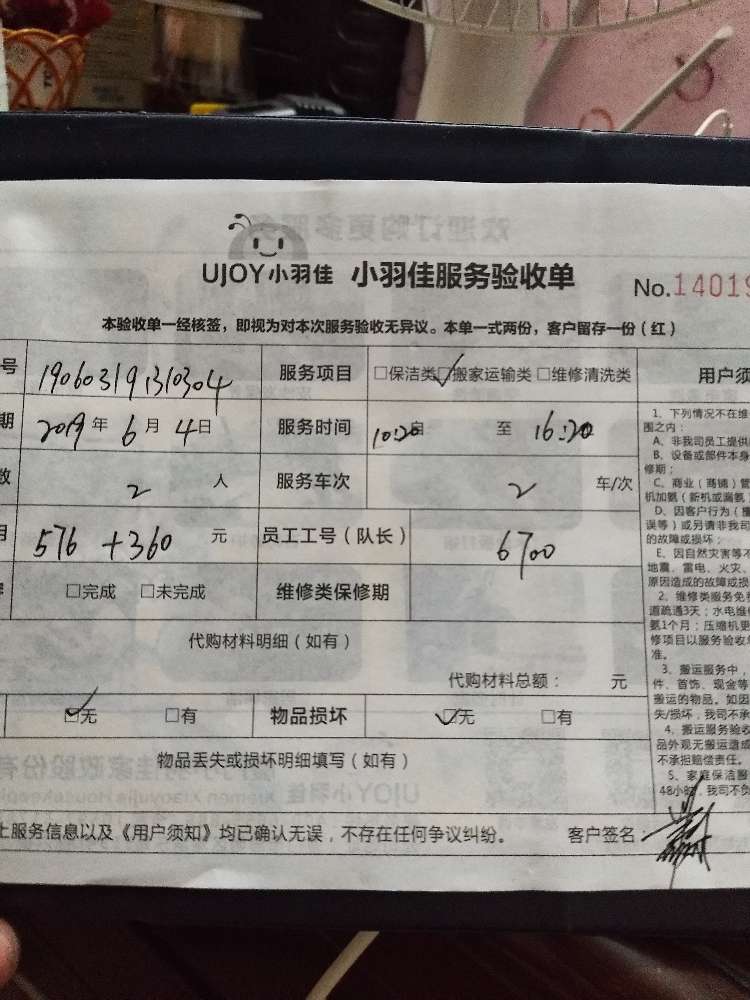 UJOY小羽佳 小羽佳服务验收单 No.14019
本验收单一经核签，即视为对本次服务验收无异议。本单一式两份，客户留存一份（红）
号 190603191310304 服务项目 □保洁类 ☑搬家运输类 □维修清洗类 用户须
期 2019年6月4日 服务时间 10:20 至 16:20
数 2 人 服务车次 2 车/次
576+360 元 员工工号（队长） 6700
□完成 □未完成 维修类保修期
代购材料明细（如有）
代购材料总额： 元
☑无 □有 物品损坏 ☑无 □有
物品丢失或损坏明细填写（如有）
上服务信息以及《用户须知》均已确认无误，不存在任何争议纠纷。 客户签名：
1、下列情况不在维
围之内：
A、非我司员工提供
B、设备或部件本身
修期；
C、商业（商铺）管
机加氨（新机或漏氨）
D、因客户行为（
误等）或另请非我司
的故障或损坏；
E、因自然灾害等不
地震、雷电、火灾、
原因造成的故障或损
2、维修类服务免费
道疏通3天；水电维
氨1个月；压缩机更
修项目以服务验收单
准。
3、搬运服务中，
件、首饰、现金等
搬运的物品。如因
失/损坏，我司不承
4、搬运服务验收
品外观无搬运造成
不承担赔偿责任。
5、家庭保洁服
48小时，我司不负